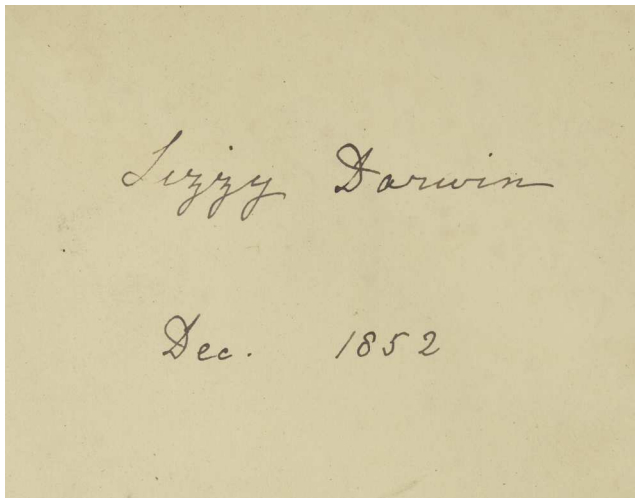 Lizzy Darwin
Dec. 1852